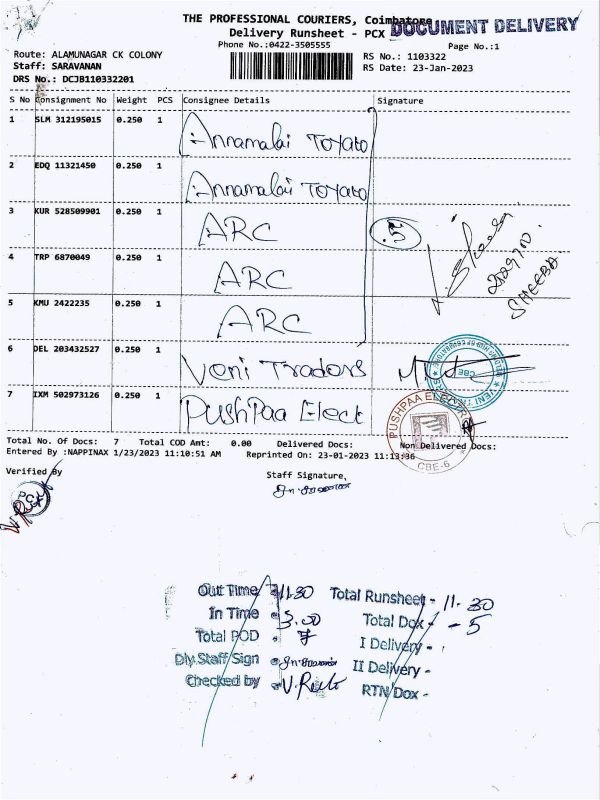 THE PROFESSIONAL COURIERS, Coimbatore
DOCUMENT DELIVERY
Delivery Runsheet - PCX
Phone No.:0422-3505555
Page No.:1
Route: ALAMUNAGAR CK COLONY
RS No.: 1103322
Staff: SARAVANAN
RS Date: 23-Jan-2023
DRS No.: DCJB110332201
S No Consignment No Weight PCS Consignee Details Signature
1 SLM 312195015 0.250 1 Annamalai Toyato
2 EDQ 11321450 0.250 1 Annamalai Toyato
3 KUR 528509901 0.250 1 ARC 5
4 TRP 6870049 0.250 1 ARC
SHEEBA
5 KMU 2422235 0.250 1 ARC
6 DEL 203432527 0.250 1 Veni Tradors
CBE
7 IXM 502973126 0.250 1 PushPaa Elect
PUSHPAA ELECTRIC
CBE-6
Total No. Of Docs: 7 Total COD Amt: 0.00 Delivered Docs: Non Delivered Docs:
Entered By :NAPPINAX 1/23/2023 11:10:51 AM Reprinted On: 23-01-2023 11:13:36
Verified By
Staff Signature,
PCX
Out Time 11.30 Total Runsheet - 11.30
In Time 3.00 Total Dox - 5
Total POD I Delivery -
Dly.Staff Sign II Delivery -
Checked by RTN Dox -